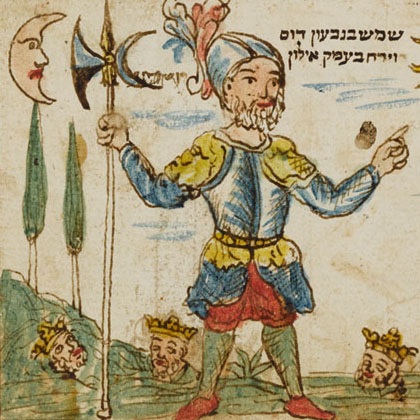 שמש בגבעון דום
וירח בעמק אילון